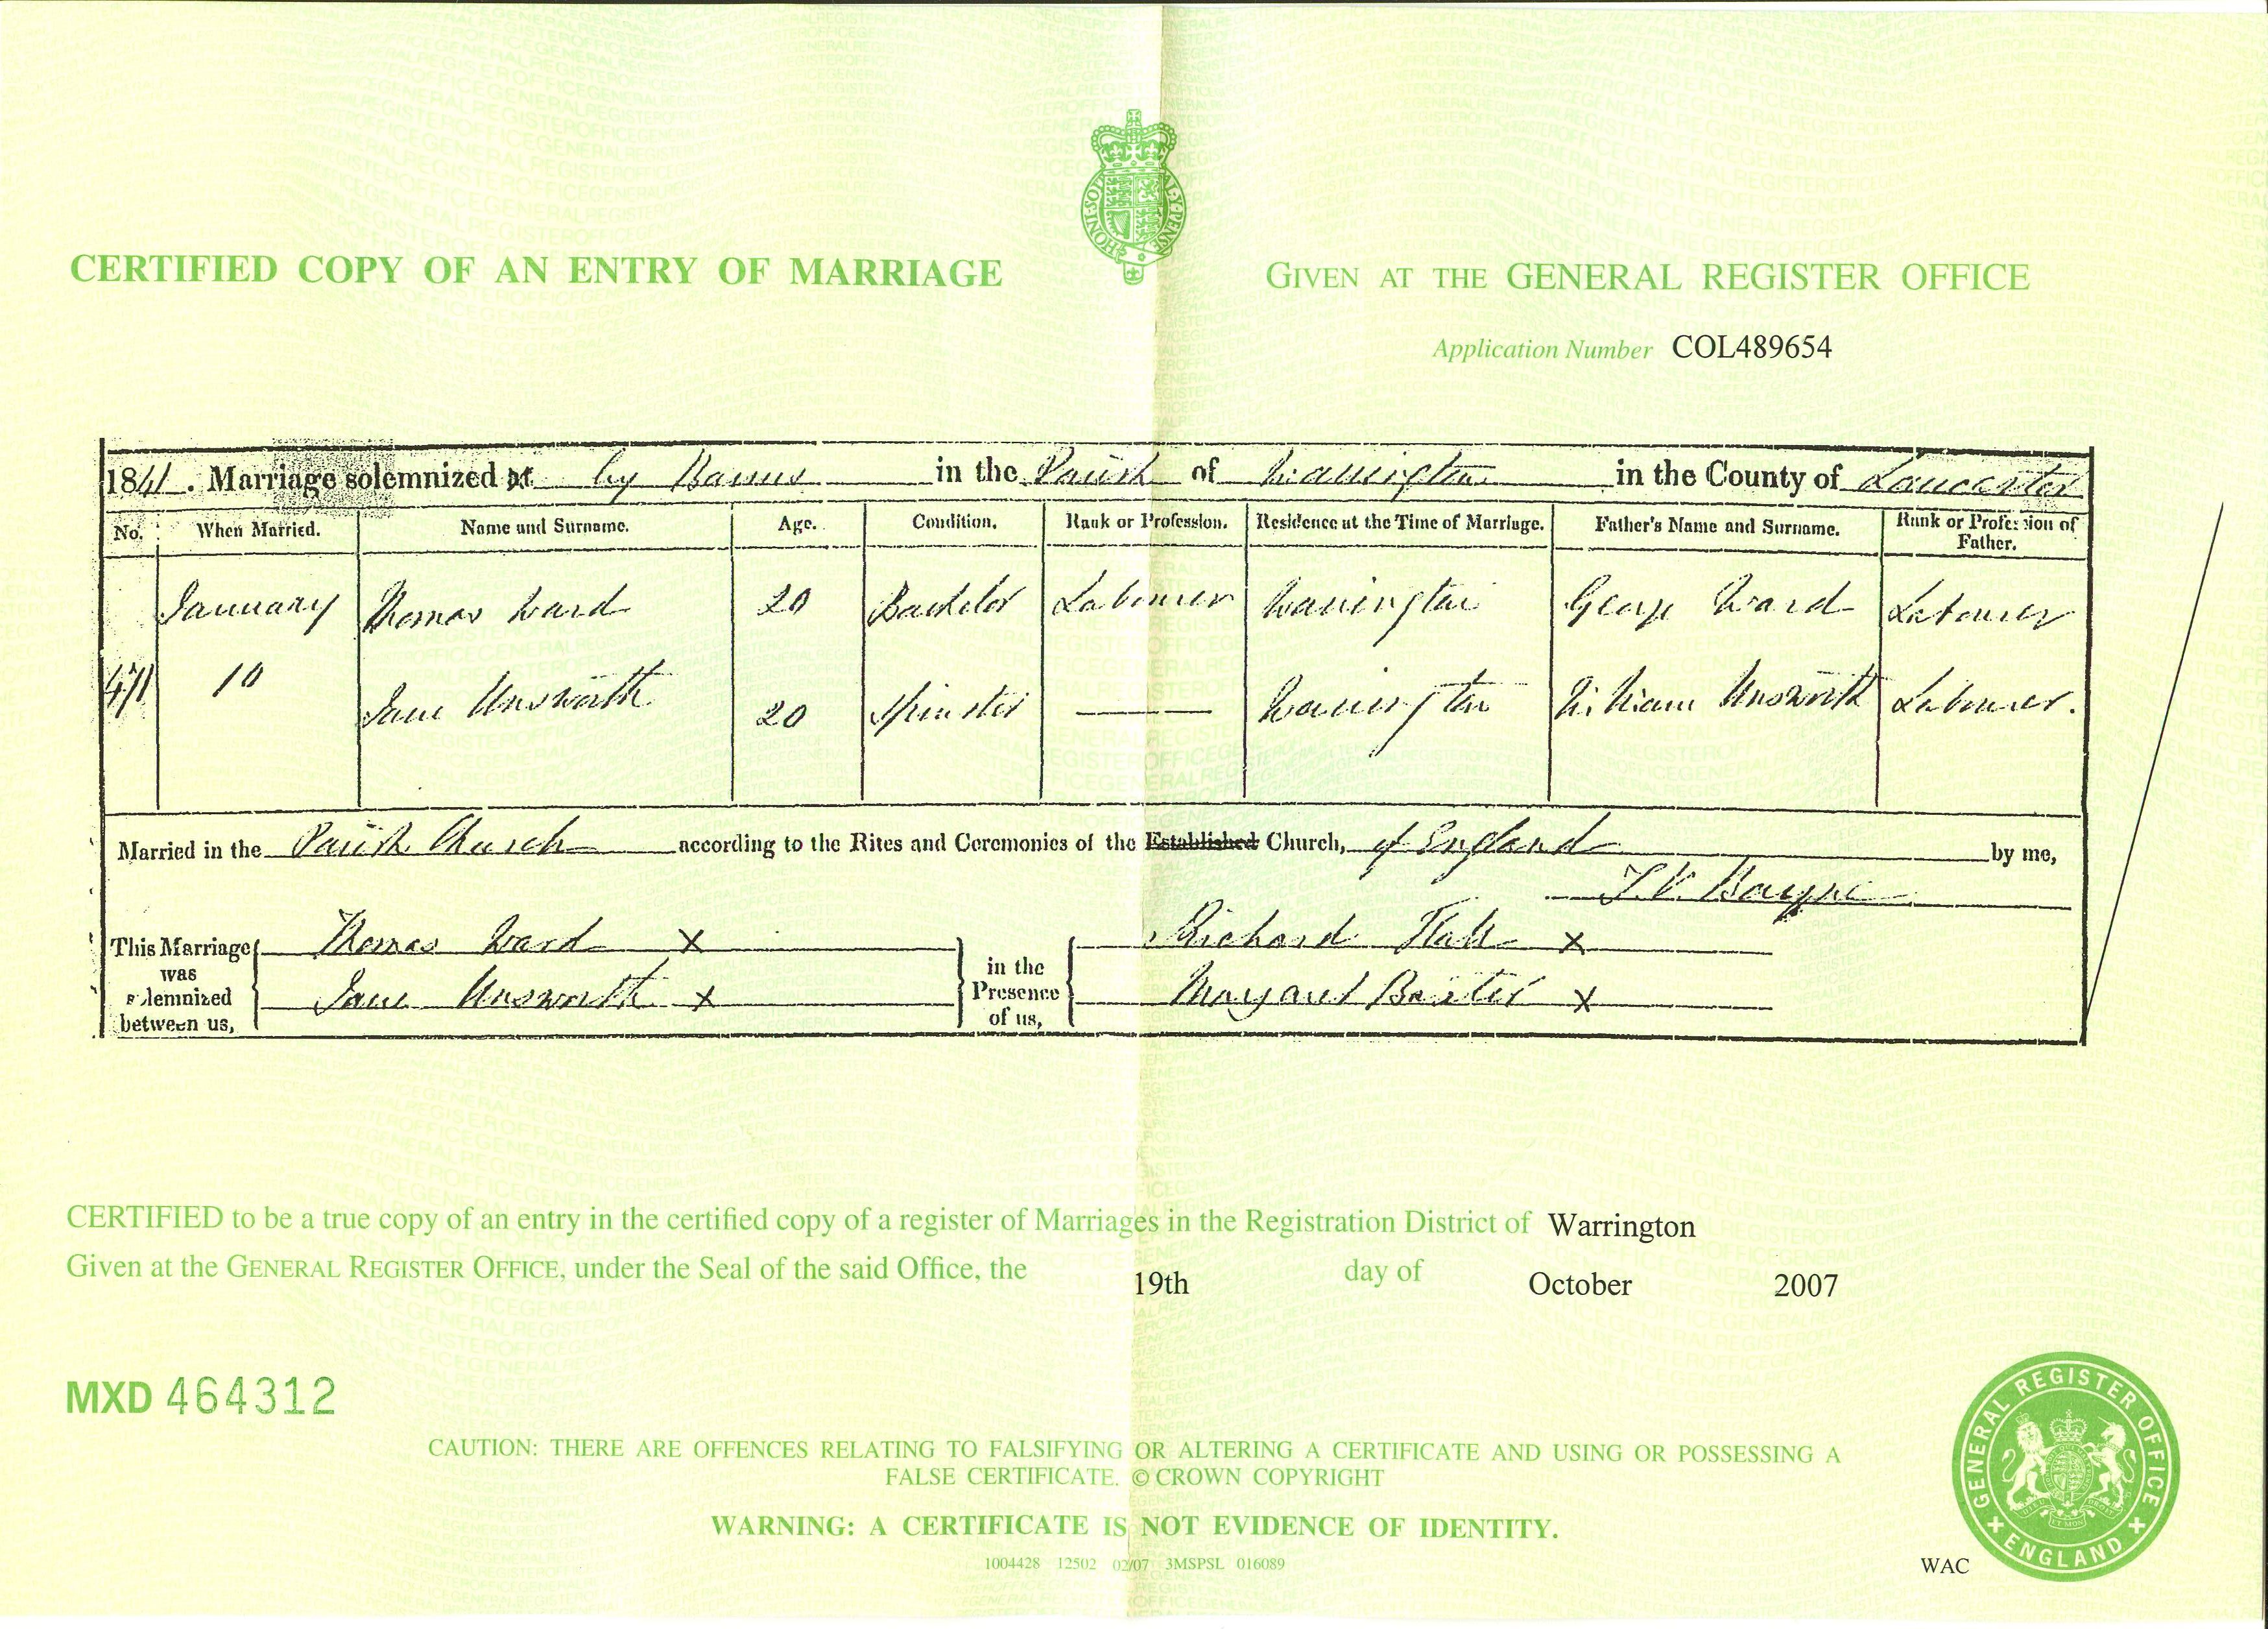 HONI·SOIT·Q·MAL·Y·PENSE
CERTIFIED COPY OF AN ENTRY OF MARRIAGE
GIVEN AT THE GENERAL REGISTER OFFICE
Application Number COL489654
1841. Marriage solemnized at by Banns in the Parish of Warrington in the County of Lancaster
No. When Married. Name and Surname. Age. Condition. Rank or Profession. Residence at the Time of Marriage. Father's Name and Surname. Rank or Profession of Father.
January Thomas Ward 20 Bachelor Labourer Warrington George Ward Labourer
471 10 Jane Unsworth 20 Spinster Warrington William Unsworth Labourer.
Married in the Parish Church according to the Rites and Ceremonies of the Established Church, of England by me,
T.V. Bayne
This Marriage was solemnized between us, Thomas Ward X in the Presence of us, Richard X
Jane Unsworth X Margaret Baxter X
CERTIFIED to be a true copy of an entry in the certified copy of a register of Marriages in the Registration District of Warrington
Given at the GENERAL REGISTER OFFICE, under the Seal of the said Office, the 19th day of October 2007
MXD 464312
CAUTION: THERE ARE OFFENCES RELATING TO FALSIFYING OR ALTERING A CERTIFICATE AND USING OR POSSESSING A
FALSE CERTIFICATE. © CROWN COPYRIGHT
WARNING: A CERTIFICATE IS NOT EVIDENCE OF IDENTITY.
1004428 12502 02/07 3MSPSL 016089
WAC
GENERAL REGISTER OFFICE
ENGLAND